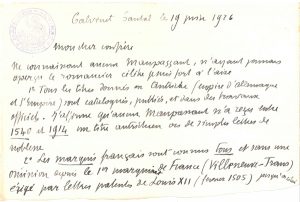 Calvinet Cantal le 19 juin 1926
Mon cher confrère
Ne connaissant aucun Maupassant, n'ayant jamais
le romancier célèbre je suis fort à l'aise
1° Tous les titres donnés en Autriche (empire d'Allemagne
et l'Empire) sont catalogués, publiés, et dans des travaux
officiels. J'ajoute qu'aucun Maupassant n'a reçu entre
1540 et 1914 un titre autrichien ou de simples lettres de
noblesse.
2° Les marquis français sont connus tous et sans une
omission depuis le 1er marquisat de France (Villeneuve-Trans)
érigé par lettres patentes de Louis XII (février 1505) jusqu'à